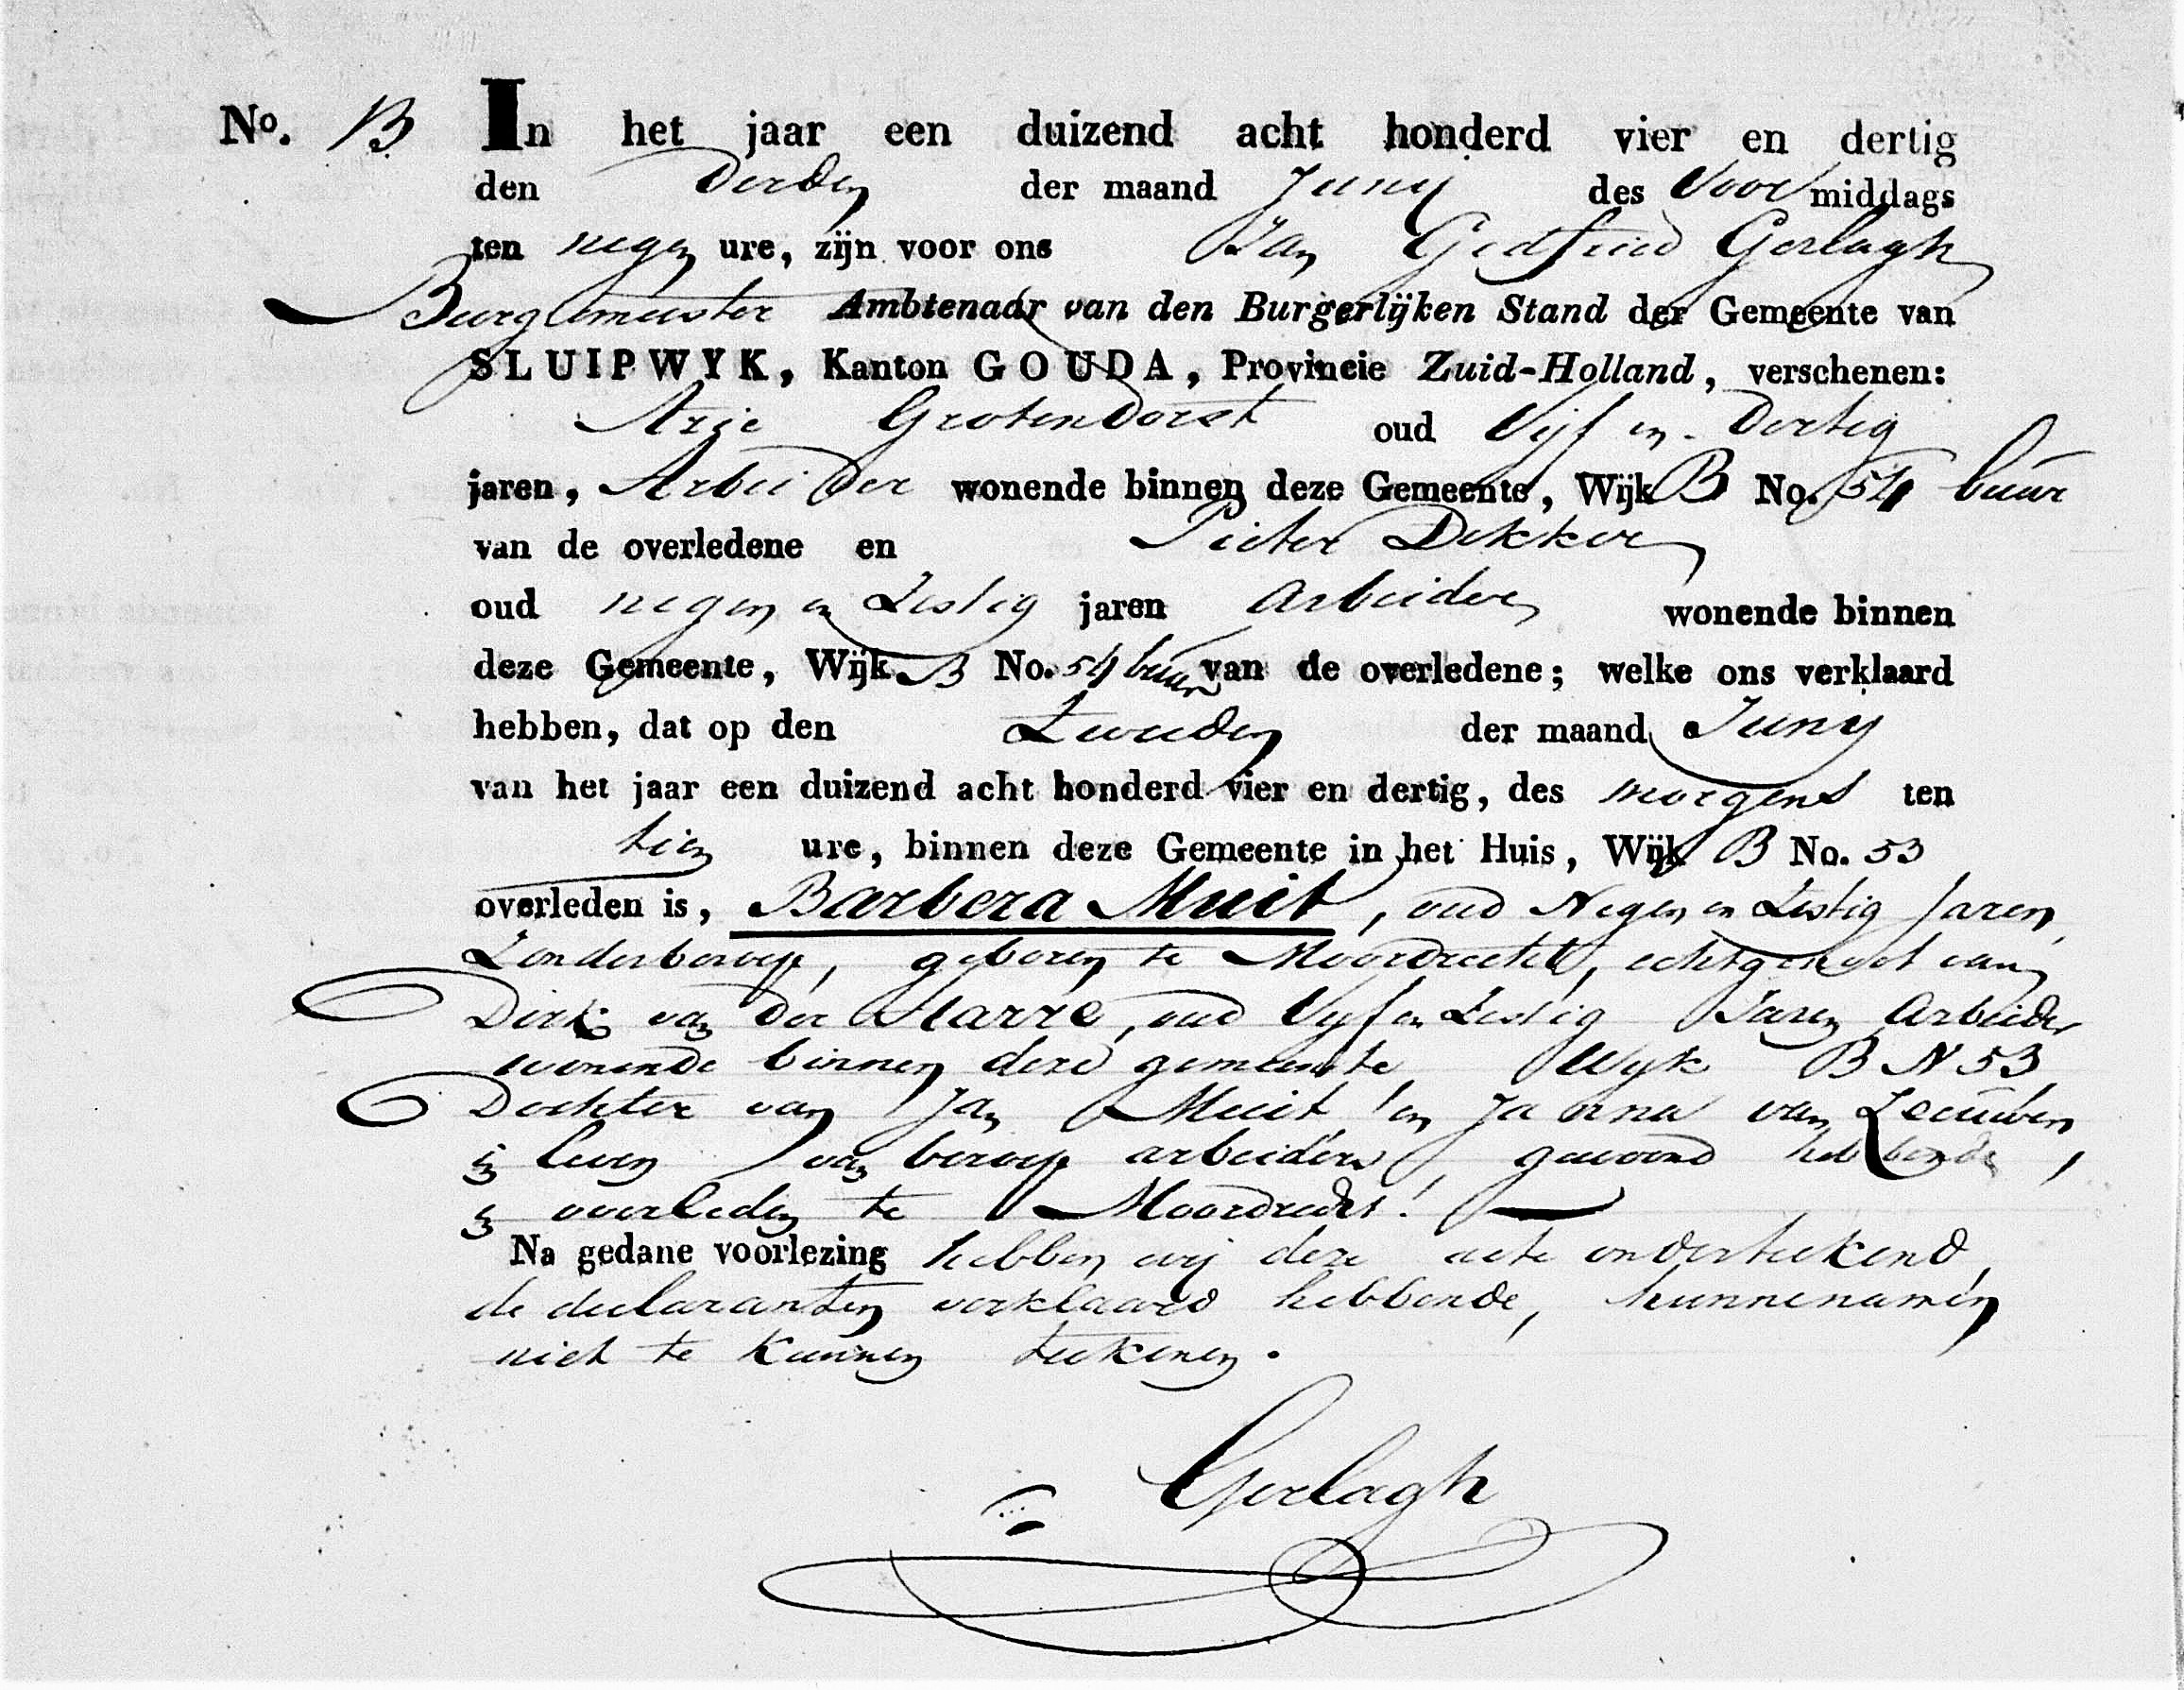 No. 13 In het jaar een duizend acht honderd vier en dertig
den Derden der maand Juny des Voormiddags
ten negen ure, zijn voor ons Jan Godfried Gerlagh
Burgemeester Ambtenaar van den Burgerlijken Stand der Gemeente van
SLUIPWYK, Kanton GOUDA, Provincie Zuid-Holland, verschenen:
Arie Grotendorst oud Vijf en Dertig
jaren, Arbeider wonende binnen deze Gemeente, Wijk B No. 54 buur
van de overledene en Pieter Dekker
oud negen en Zestig jaren Arbeider wonende binnen
deze Gemeente, Wijk B No. 54 buur van de overledene; welke ons verklaard
hebben, dat op den Tweeden der maand Juny
van het jaar een duizend acht honderd vier en dertig, des morgens ten
tien ure, binnen deze Gemeente in het Huis, Wijk B No. 53
overleden is, Barbera Muit, oud Negen en Zestig Jaren,
Zonderberoep, geboren te Moordrecht, echtgenoot van
Dirk van der Marre, oud Vyf en Zestig Jaren Arbeider
wonende binnen deze gemeente Wyk B N 53
Dochter van Jan Muit en Janna van Leeuwen
in leven van beroep arbeiders, gewoond hebbende,
en overleden te Moordrecht!
Na gedane voorlezing hebben wij deze acte onderteekend,
de declaranten verklaard hebbende, hunne namen
niet te kunnen teekenen.
Gerlagh